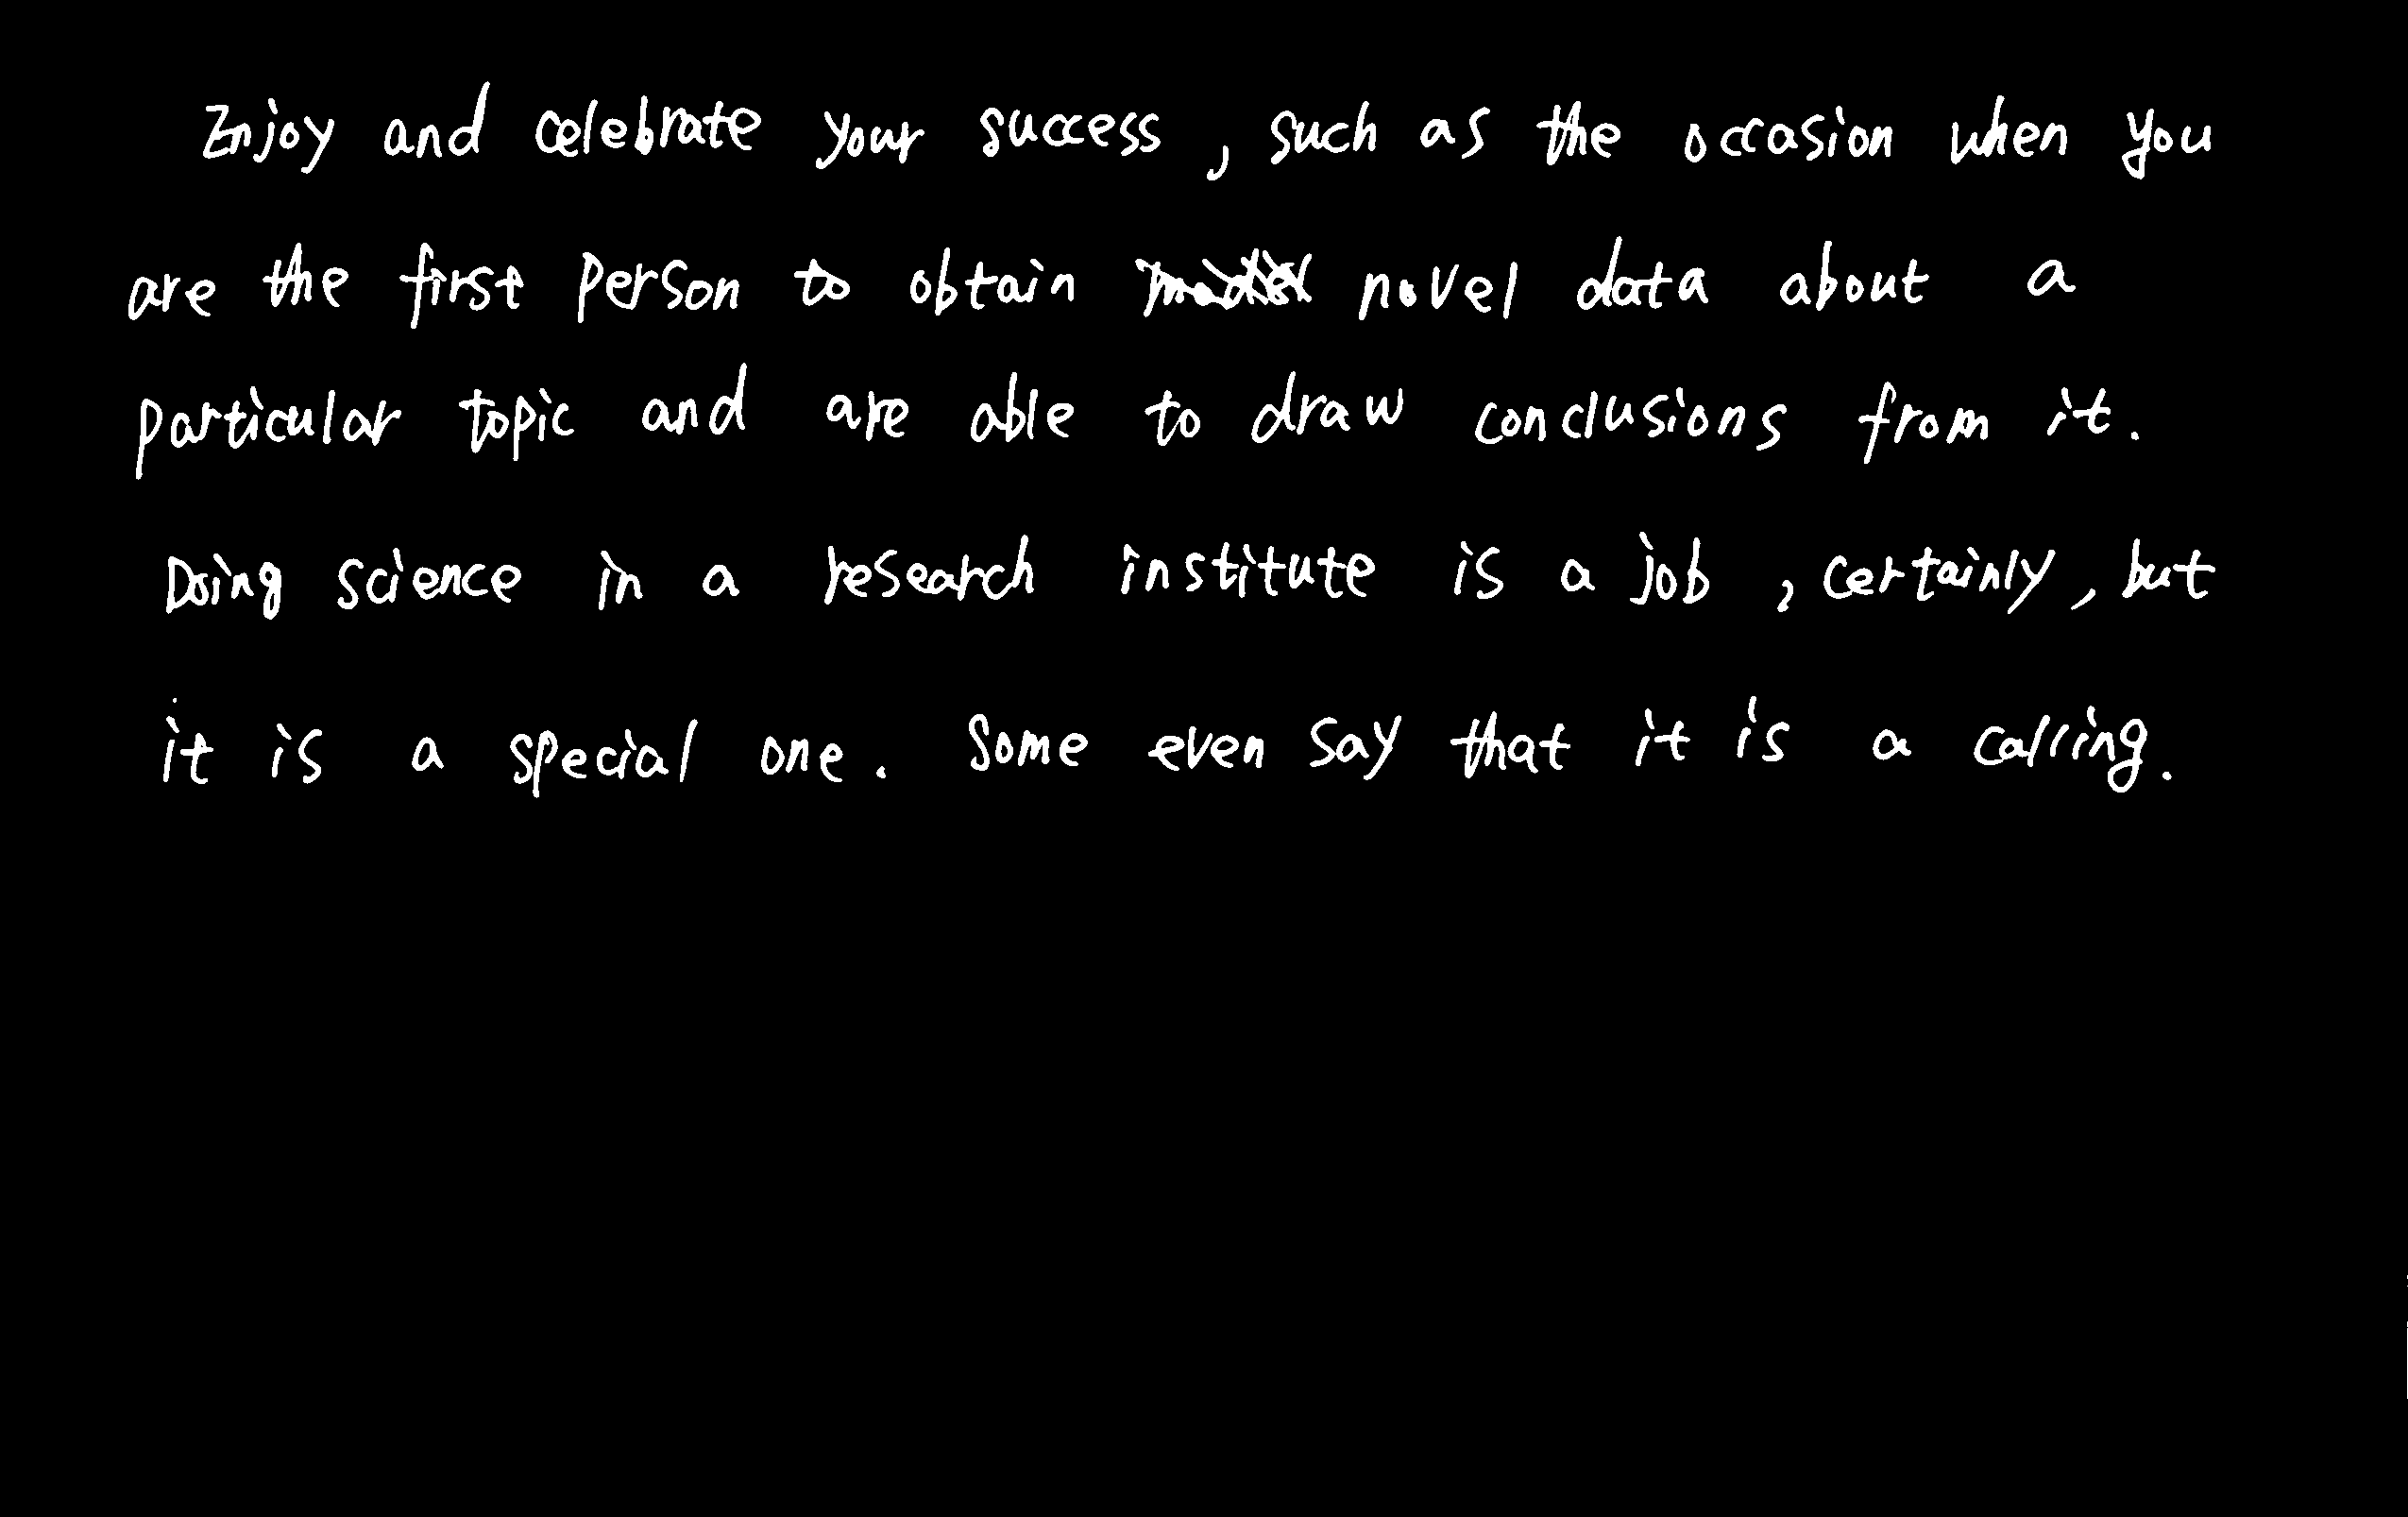 Enjoy and celebrate your success, such as the occasion when you
are the first person to obtain novel data about a
particular topic and are able to draw conclusions from it.
Doing science in a research institute is a job, certainly, but
it is a special one. Some even say that it is a calling.